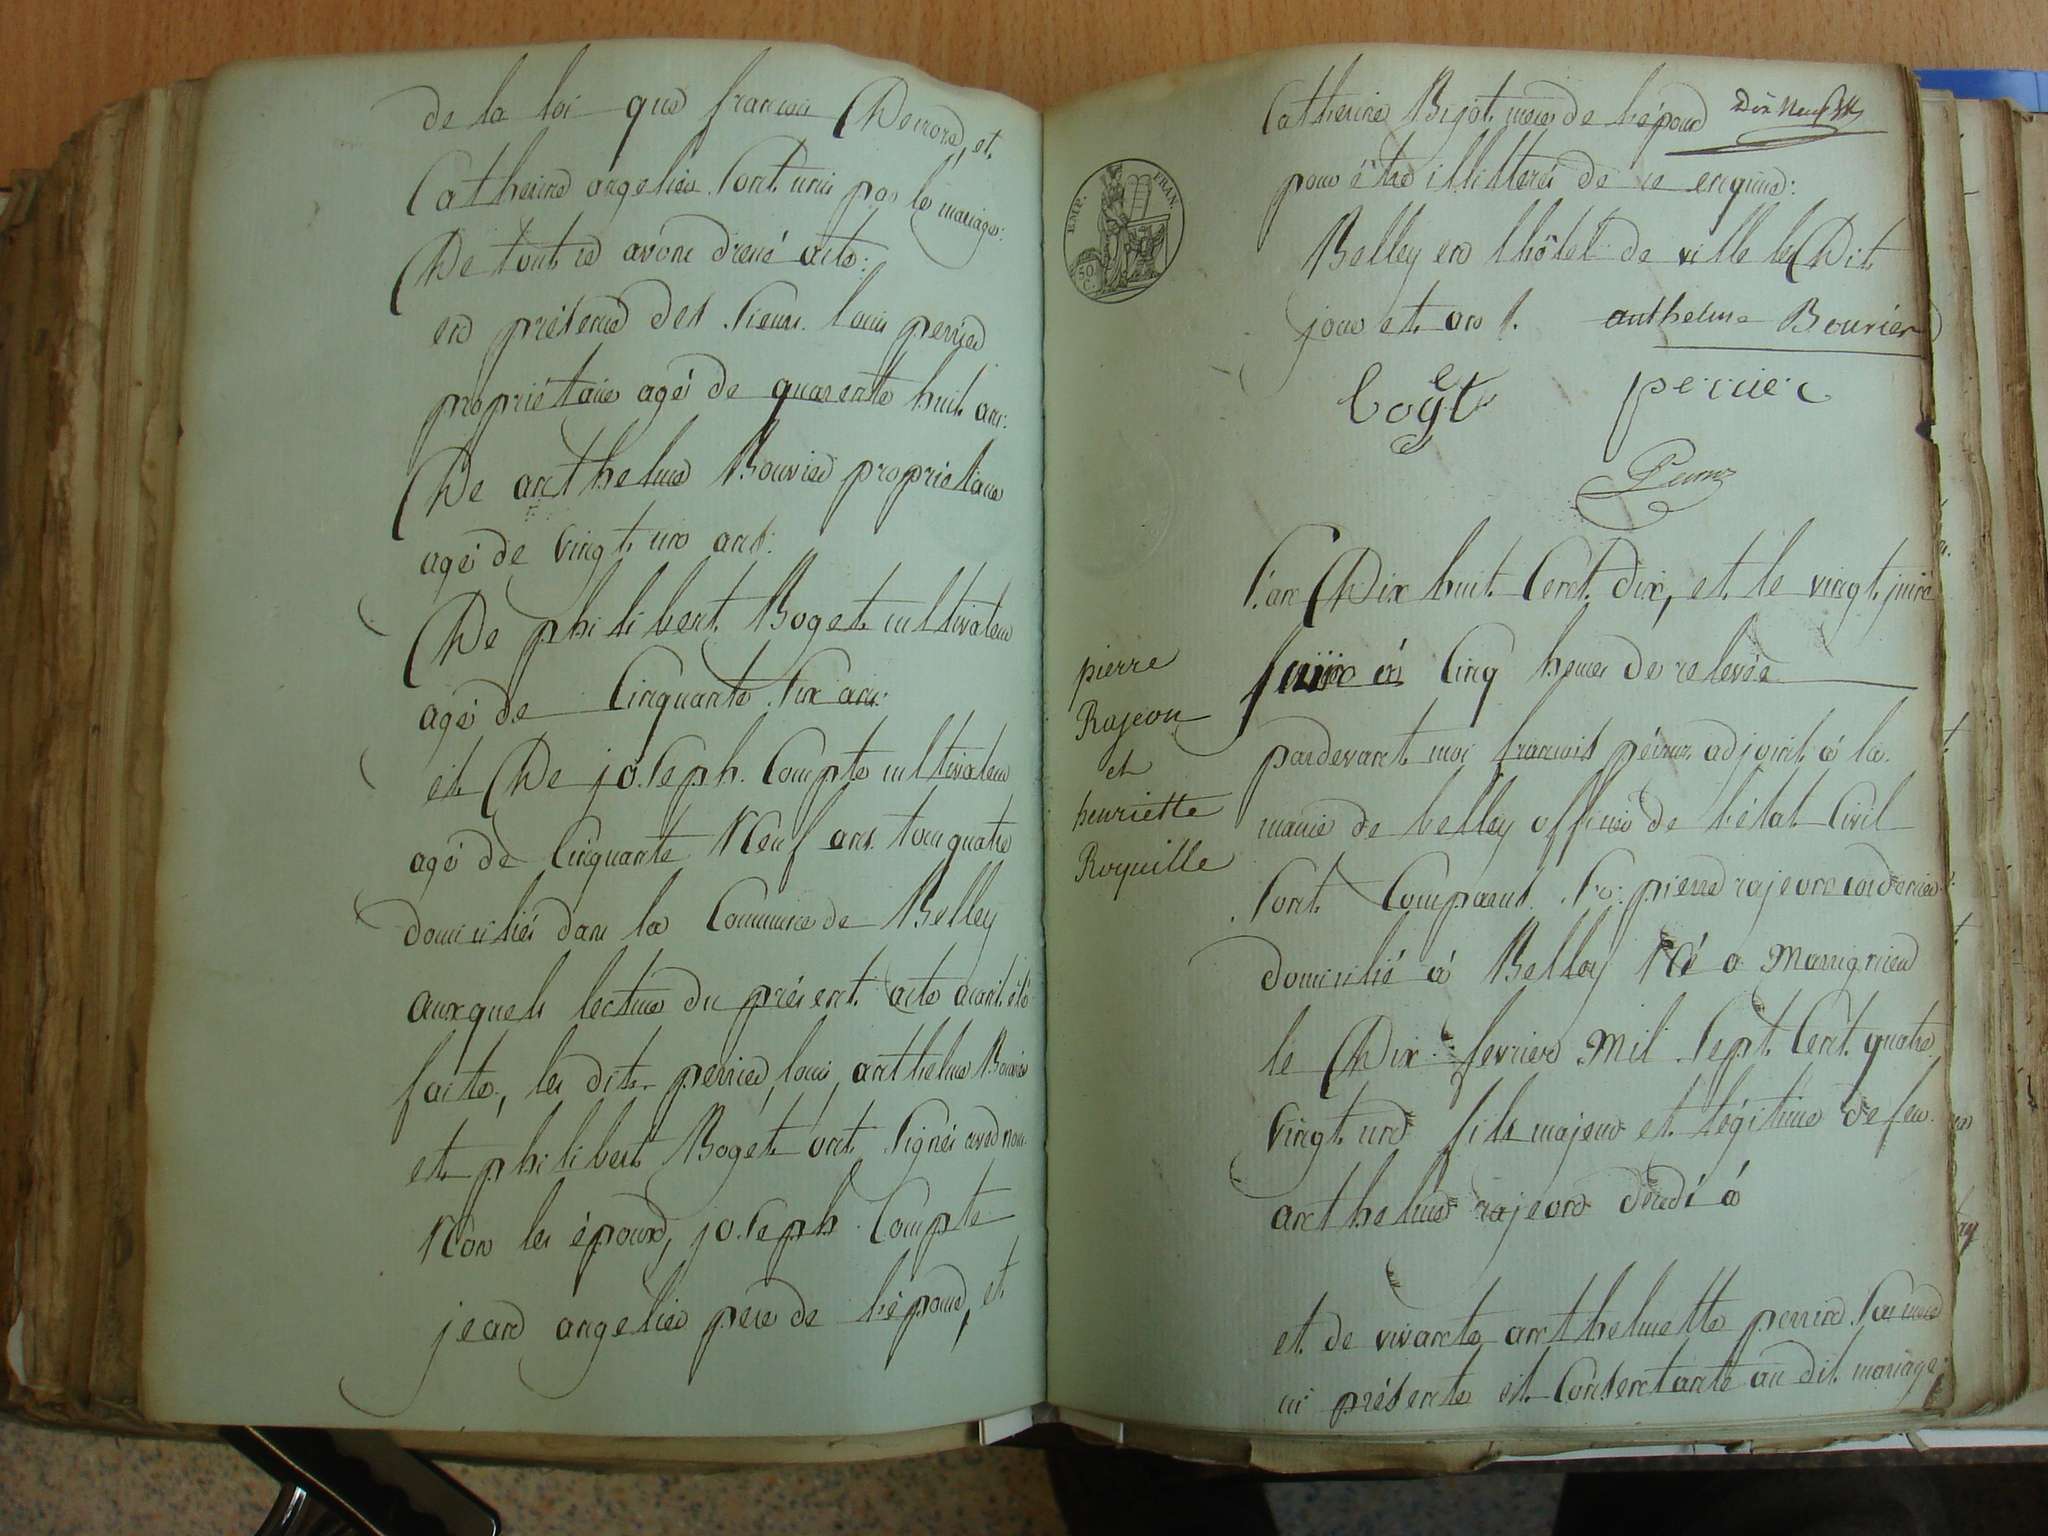 de la loi que francois Demond, et
Catherine angelier Sont unis par le mariage:
De tout ce avons dressé acte:
en présence des Sieurs louis perrier
propriétaire agé de quarente huit ans:
De anthelme Bouvier propriétaire
agé de Vingt un ans:
De philibert Boget cultivateur
agé de Cinquante Six ans:
et De joseph Compte cultivateur
agé de Cinquante Neuf ans tous quatre
domiciliés dans la Commune de Belley
auxquels lecture du présent acte ayant été
faite, les dits perrier louis, anthelme Bouvier
et philibert Boget ont Signés avec nous
Non les époux, joseph Compte
jean angelier père de l'épouse, et
Catherine Bijot mère de l'époux
pour être illitterés de ce enquis:
Belley en l'hôtel de ville les Dit
jour et an
anthelme Bouvier
boget
perrier
EMP. FRAN.
50 C.
pierre
Rajeon
et
henriette
Royuille
L'an Dix huit Cent dix, et le vingt juin
à Cinq heures de relevée
pardevant moi francois adjoint à la
mairie de belley officier de l'état Civil
Sont Comparus Sr. pierre rajeon cordonnier
domicilié à Belley Né a Massignieu
le Dix fevrier Mil Sept Cent quatre
Vingt un fils majeur et légitime de feu
anthelme rajeon décédé à
et de vivante anthelmette perrin Sa mère
ici présente et Consentante au dit mariage: